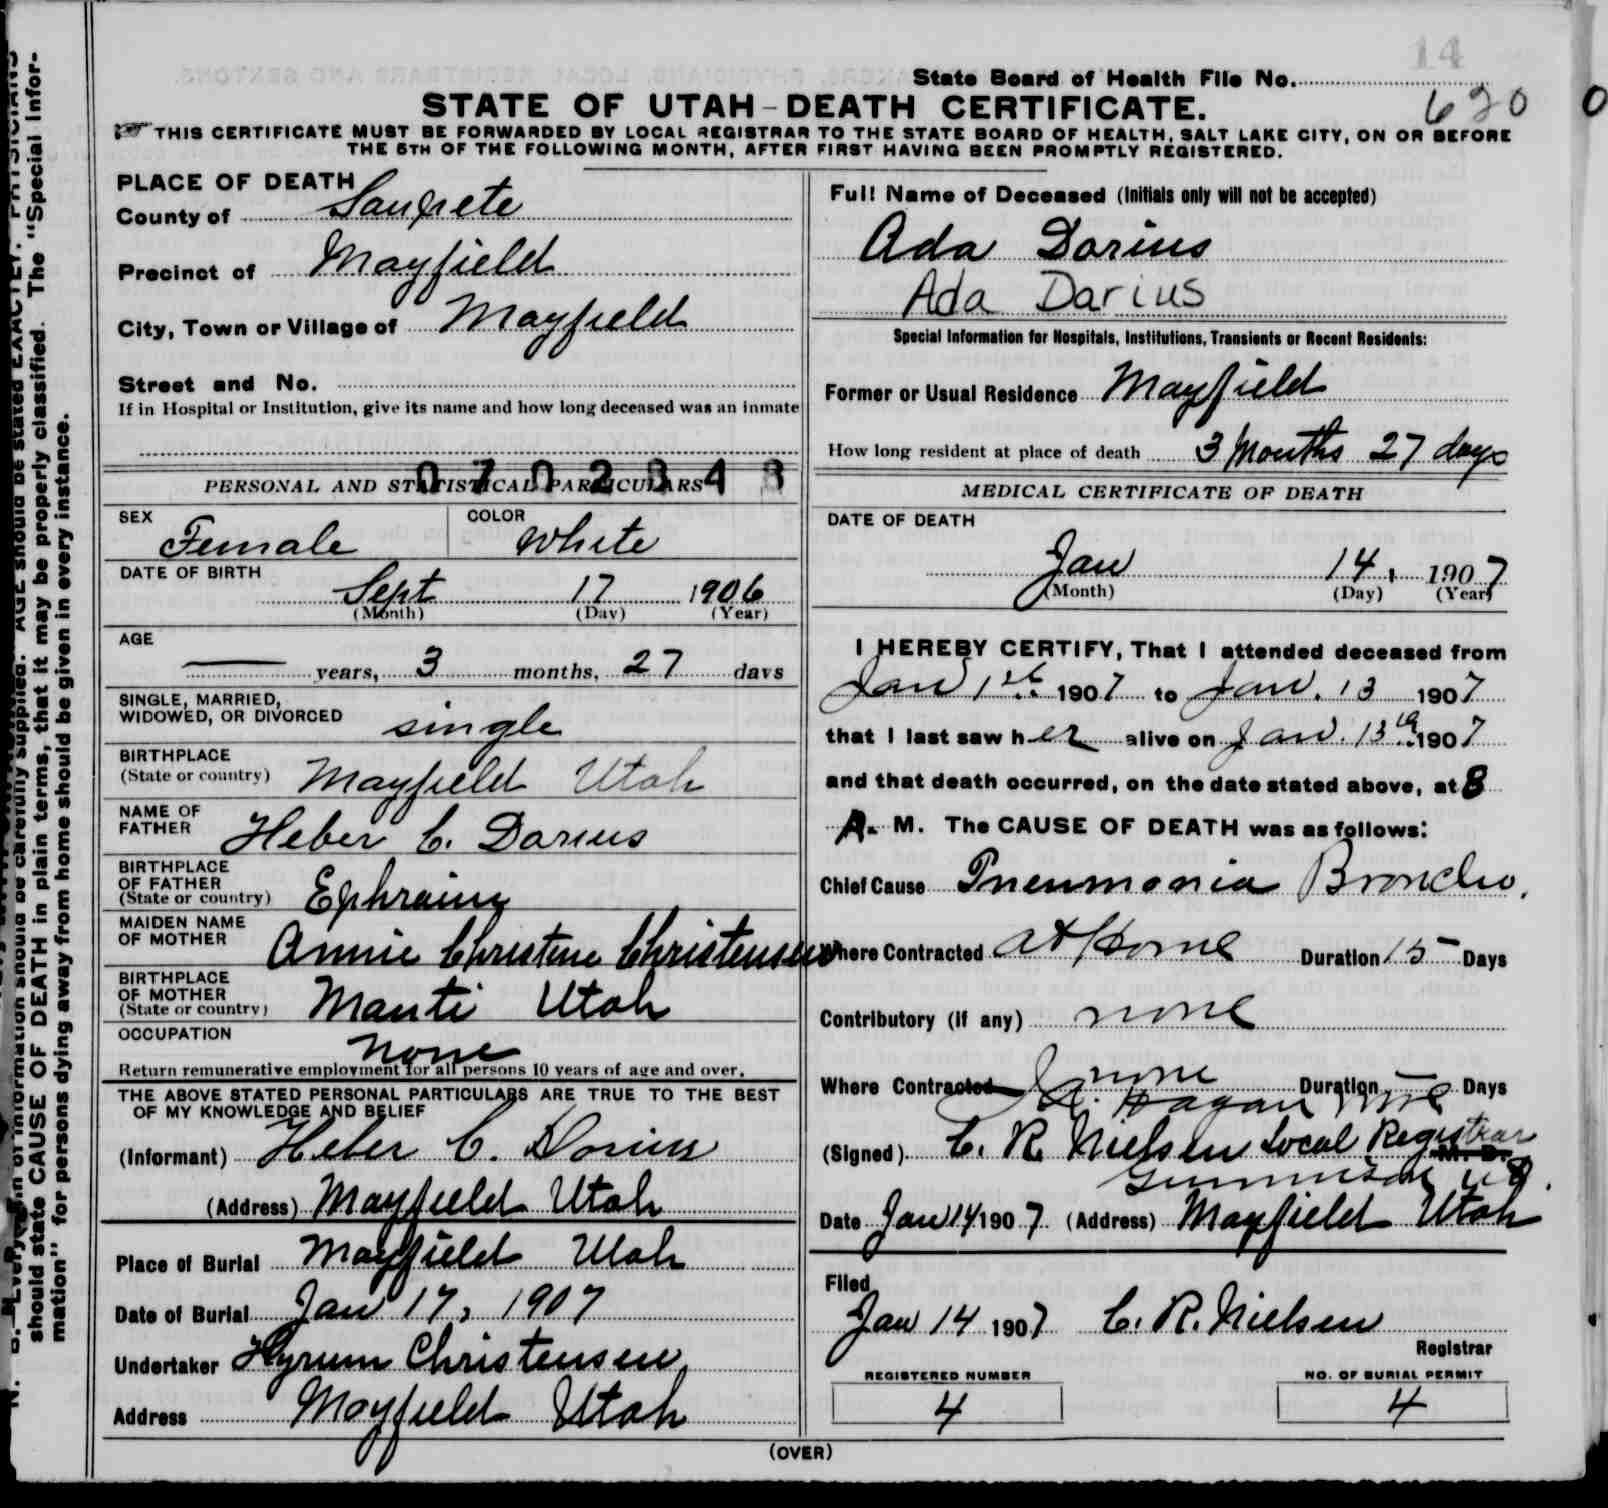 14
State Board of Health File No.
620
STATE OF UTAH-DEATH CERTIFICATE.
THIS CERTIFICATE MUST BE FORWARDED BY LOCAL REGISTRAR TO THE STATE BOARD OF HEALTH, SALT LAKE CITY, ON OR BEFORE
THE 5TH OF THE FOLLOWING MONTH, AFTER FIRST HAVING BEEN PROMPTLY REGISTERED.
PLACE OF DEATH
County of Sanpete
Precinct of Mayfield
City, Town or Village of Mayfield
Street and No.
If in Hospital or Institution, give its name and how long deceased was an inmate
PERSONAL AND STATISTICAL PARTICULARS
SEX Female
COLOR White
DATE OF BIRTH
Sept 17 1906
(Month) (Day) (Year)
AGE
years, 3 months, 27 days
SINGLE, MARRIED,
WIDOWED, OR DIVORCED single
BIRTHPLACE
(State or country) Mayfield Utah
NAME OF
FATHER Heber C. Dorius
BIRTHPLACE
OF FATHER
(State or country) Ephraim
MAIDEN NAME
OF MOTHER Annie Christine Christensen
BIRTHPLACE
OF MOTHER
(State or country) Manti Utah
OCCUPATION
none
Return remunerative employment for all persons 10 years of age and over.
THE ABOVE STATED PERSONAL PARTICULARS ARE TRUE TO THE BEST
OF MY KNOWLEDGE AND BELIEF
(Informant) Heber C. Dorius
(Address) Mayfield Utah
Place of Burial Mayfield Utah
Date of Burial Jan 17, 1907
Undertaker Hyrum Christensen,
Address Mayfield Utah
Full Name of Deceased (Initials only will not be accepted)
Ada Dorius
Ada Darius
Special Information for Hospitals, Institutions, Transients or Recent Residents:
Former or Usual Residence Mayfield
How long resident at place of death 3 Months 27 days
MEDICAL CERTIFICATE OF DEATH
DATE OF DEATH
Jan 14, 1907
(Month) (Day) (Year)
I HEREBY CERTIFY, That I attended deceased from
Jan 1st 1907 to Jan. 13 1907
that I last saw her alive on Jan. 13th 1907
and that death occurred, on the date stated above, at 8
A. M. The CAUSE OF DEATH was as follows:
Chief Cause Pneumonia Broncho,
Where Contracted at Home Duration 15 Days
Contributory (if any) none
Where Contracted none Duration Days
Hagan
(Signed) C. R. Nielsen Local Registrar M. D.
Gunnison
Date Jan 14 1907 (Address) Mayfield Utah
Filed
Jan 14 1907 C. R. Nielsen
Registrar
REGISTERED NUMBER
4
NO. OF BURIAL PERMIT
4
(OVER)
should state CAUSE OF DEATH in plain terms, that it may be properly classified. The "Special Infor-
mation" for persons dying away from home should be given in every instance.